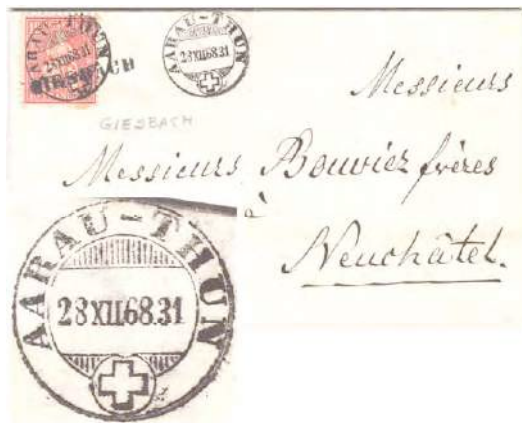 AARAU-THUN
28XII68.31
AARAU-THUN
28XII68.31
GIESBACH
Messieurs
Messieurs Bouvier frères
à
Neuchâtel.
AARAU-THUN
28XII68.31